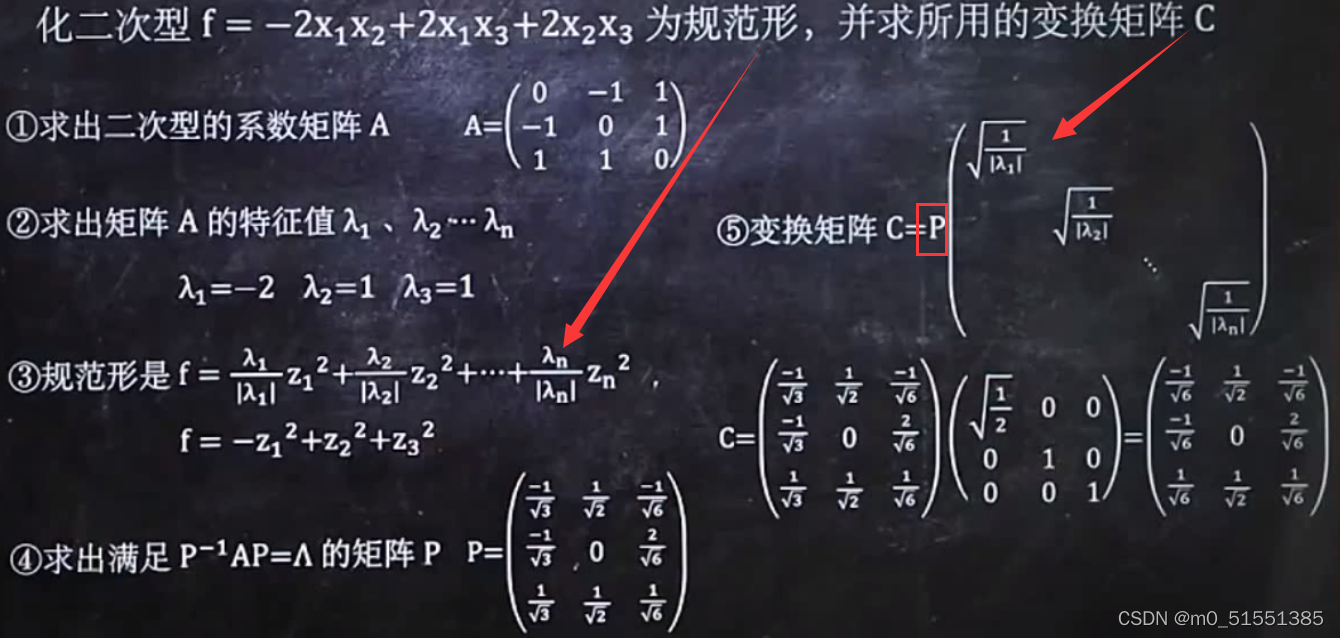 化二次型 f = −2x₁x₂+2x₁x₃+2x₂x₃ 为规范形，并求所用的变换矩阵 C
①求出二次型的系数矩阵 A A=
0 −1 1
−1 0 1
1 1 0
②求出矩阵 A 的特征值 λ₁ 、λ₂ ⋯ λₙ
λ₁=−2 λ₂=1 λ₃=1
③规范形是 f = λ₁/|λ₁| z₁²+ λ₂/|λ₂| z₂²+⋯+ λₙ/|λₙ| zₙ² ，
f = −z₁²+z₂²+z₃²
④求出满足 P⁻¹AP=Λ 的矩阵 P P=
−1/√3 1/√2 −1/√6
−1/√3 0 2/√6
1/√3 1/√2 1/√6
⑤变换矩阵 C=P
√(1/|λ₁|)
√(1/|λ₂|)
⋱
√(1/|λₙ|)
C=
−1/√3 1/√2 −1/√6
−1/√3 0 2/√6
1/√3 1/√2 1/√6
√(1/2) 0 0
0 1 0
0 0 1
=
−1/√6 1/√2 −1/√6
−1/√6 0 2/√6
1/√6 1/√2 1/√6
CSDN @m0_51551385